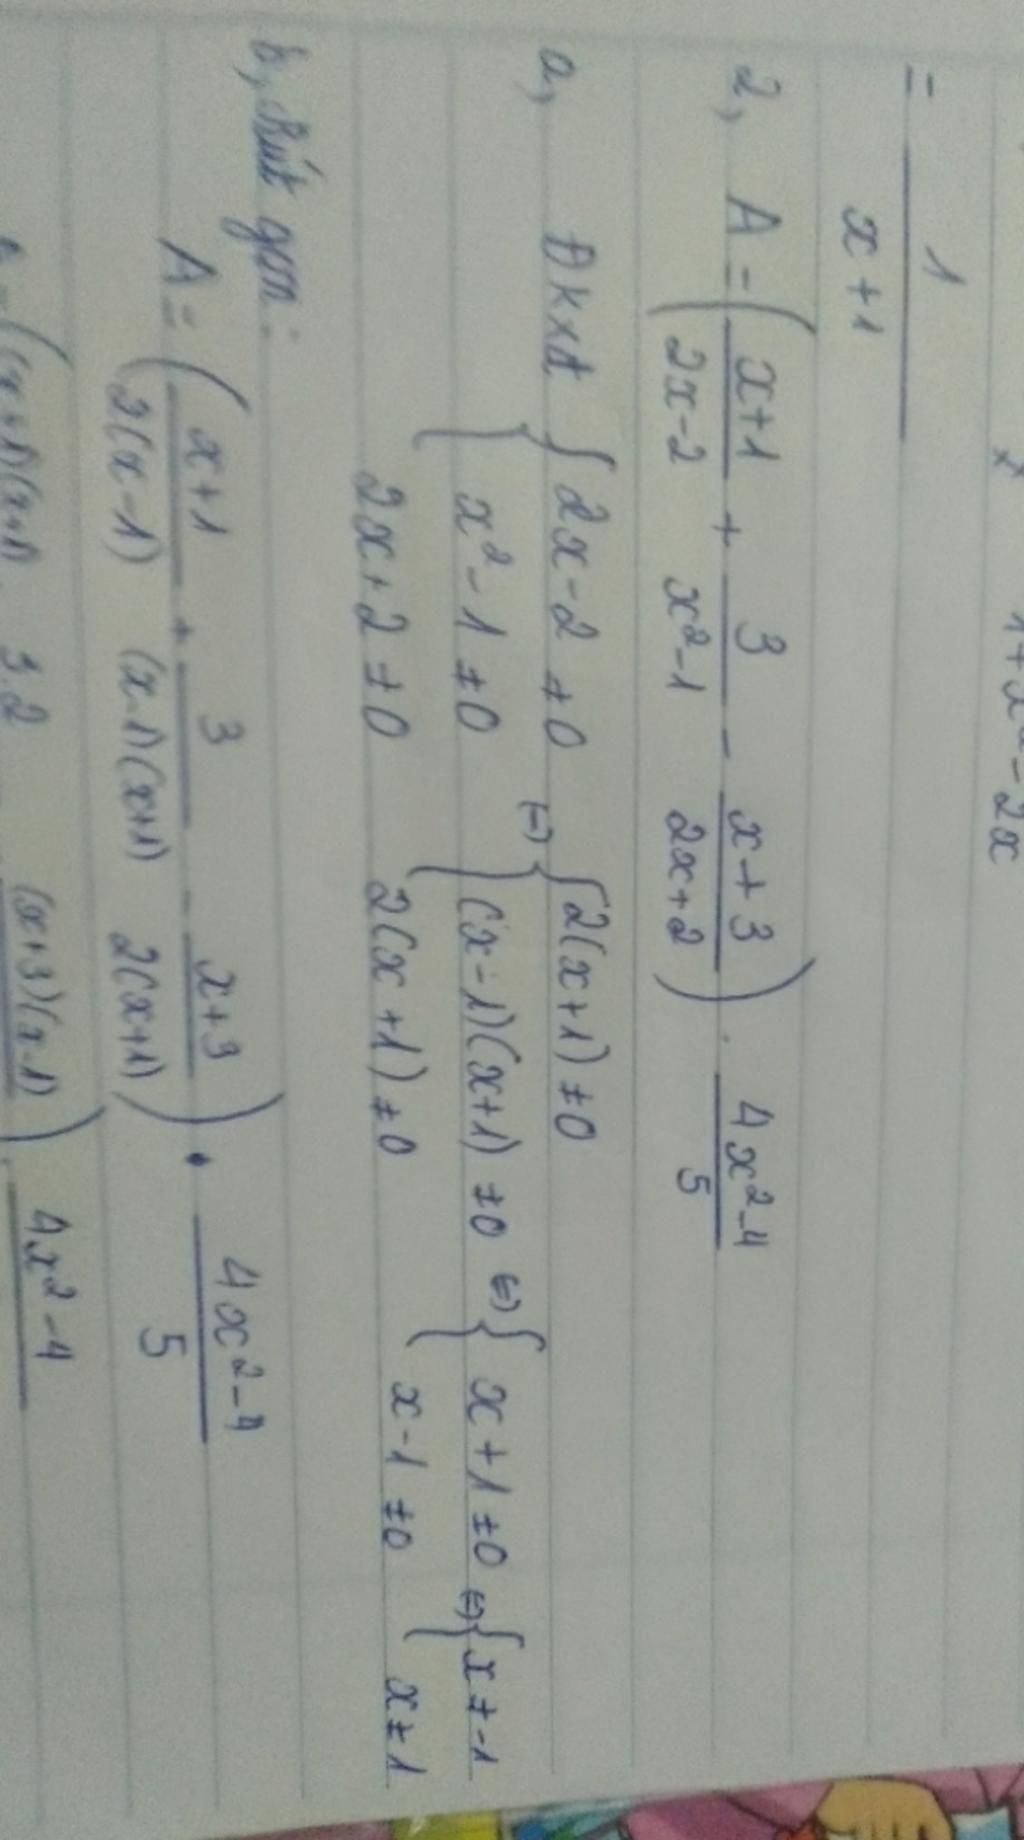 1+x²-2x
= 1
x+1
2, A = (x+1/2x-2 + 3/x²-1 - x+3/2x+2) . 4x²-4/5
a, Đkxđ { 2x-2 ≠ 0 (=) { 2(x+1) ≠ 0
x²-1 ≠ 0 (x-1)(x+1) ≠ 0 (=) { x+1 ≠ 0 (=) { x ≠ -1
2x+2 ≠ 0 2(x+1) ≠ 0 x-1 ≠ 0 x ≠ 1
b, Rút gọn:
A = (x+1/2(x-1) + 3/(x-1)(x+1) - x+3/2(x+1)) . 4x²-4/5
((x+1)(x+1) 3.2 (x+3)(x-1)) . 4x²-4